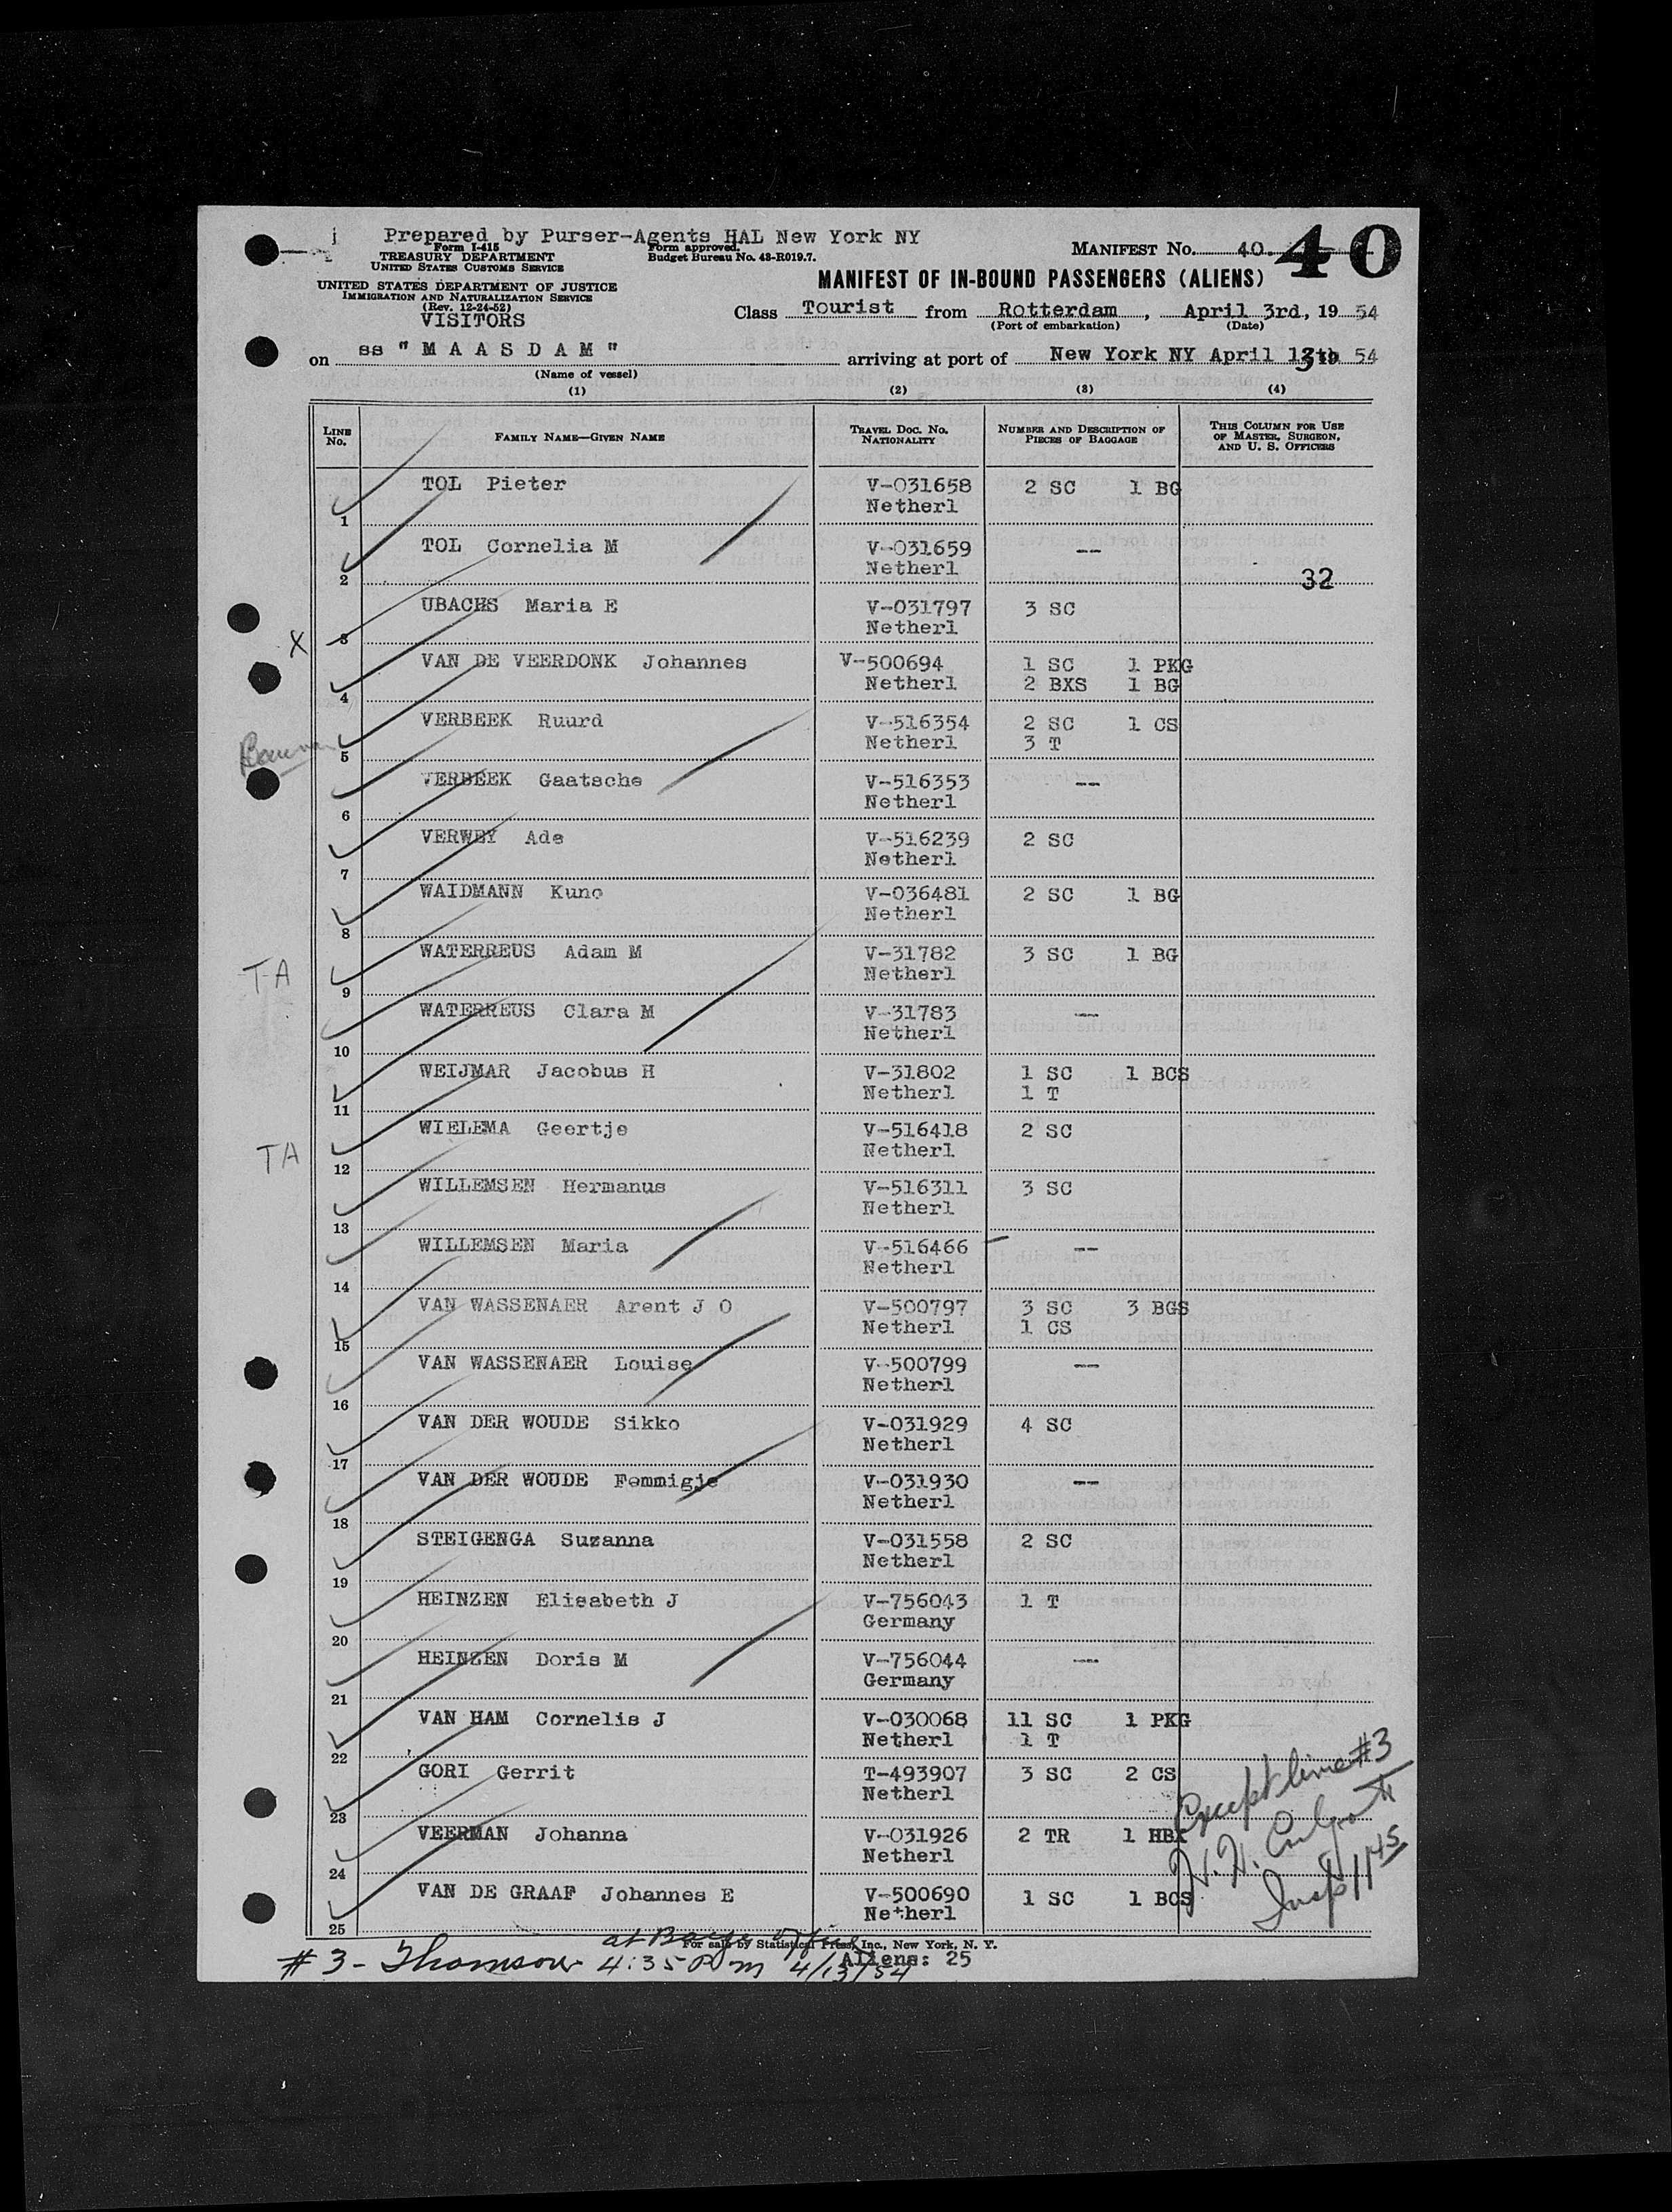 j Prepared by Purser-Agents HAL New York NY
Form I-415
TREASURY DEPARTMENT
UNITED STATES CUSTOMS SERVICE
Form approved.
Budget Bureau No. 43-R019.7.
MANIFEST No. 40. 40
UNITED STATES DEPARTMENT OF JUSTICE
IMMIGRATION AND NATURALIZATION SERVICE
(Rev. 12-24-52)
VISITORS
MANIFEST OF IN-BOUND PASSENGERS (ALIENS)
Class Tourist from Rotterdam, April 3rd, 19 54
(Port of embarkation) (Date)
on ss "MAASDAM" arriving at port of New York NY April 13th 54
(Name of vessel)
(1) (2) (3) (4)
LINE No. FAMILY NAME—GIVEN NAME TRAVEL DOC. NO. NATIONALITY NUMBER AND DESCRIPTION OF PIECES OF BAGGAGE THIS COLUMN FOR USE OF MASTER, SURGEON, AND U. S. OFFICERS
TOL Pieter V-031658 2 SC 1 BG
1 Netherl
TOL Cornelia M V-031659 --
2 Netherl 32
UBACHS Maria E V-031797 3 SC
X 3 Netherl
VAN DE VEERDONK Johannes V-500694 1 SC 1 PKG
4 Netherl 2 BXS 1 BG
VERBEEK Ruurd V-516354 2 SC 1 CS
5 Netherl 3 T
VERBEEK Gaatsche V-516353 --
6 Netherl
VERWEY Ade V-516239 2 SC
7 Netherl
WAIDMANN Kuno V-036481 2 SC 1 BG
8 Netherl
WATERREUS Adam M V-31782 3 SC 1 BG
TA 9 Netherl
WATERREUS Clara M V-31783 --
10 Netherl
WEIJMAR Jacobus H V-31802 1 SC 1 BCS
11 Netherl 1 T
WIELEMA Geertje V-516418 2 SC
TA 12 Netherl
WILLEMSEN Hermanus V-516311 3 SC
13 Netherl
WILLEMSEN Maria V-516466 --
14 Netherl
VAN WASSENAER Arent J O V-500797 3 SC 3 BGS
15 Netherl 1 CS
VAN WASSENAER Louise V-500799 --
16 Netherl
VAN DER WOUDE Sikko V-031929 4 SC
17 Netherl
VAN DER WOUDE Femmigje V-031930 --
18 Netherl
STEIGENGA Suzanna V-031558 2 SC
19 Netherl
HEINZEN Elisabeth J V-756043 1 T
20 Germany
HEINZEN Doris M V-756044 --
21 Germany
VAN HAM Cornelis J V-030068 11 SC 1 PKG
22 Netherl 1 T
GORI Gerrit T-493907 3 SC 2 CS
23 Netherl
VEERMAN Johanna V-031926 2 TR 1 HBX
24 Netherl
VAN DE GRAAF Johannes E V-500690 1 SC 1 BCS
25 Netherl
Except line #3
Insp 1145
For sale by Statistical Press, Inc., New York, N. Y.
at Barge Office
#3 - Thomson 4:35 P m 4/13/54
Aliens: 25